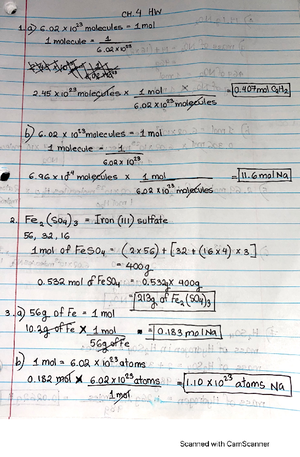 CH.4 HW
1. a) 6.02 x 10²³ molecules = 1 mol
1 molecule = 1 / 6.02 x 10²³
2.45 x 10²³ molecules x 1 mol / 6.02 x 10²³ molecules = 0.407 mol C₂H₂
b) 6.02 x 10²³ molecules = 1 mol
1 molecule = 1 / 6.02 x 10²³
6.96 x 10²⁴ molecules x 1 mol / 6.02 x 10²³ molecules = 11.6 mol Na
2. Fe₂(SO₄)₃ = Iron (III) sulfate
56, 32, 16
1 mol of FeSO₄ = (2 x 56) + [32 + (16 x 4) x 3]
= 400g
0.532 mol of FeSO₄ = 0.532 x 400g
= 213g of Fe₂(SO₄)₃
3. a) 56g of Fe = 1 mol
10.2g of Fe x 1 mol / 56g of Fe = 0.183 mol Na
b) 1 mol = 6.02 x 10²³ atoms
0.182 mol x 6.02 x 10²³ atoms / 1 mol = 1.10 x 10²³ atoms Na
Scanned with CamScanner